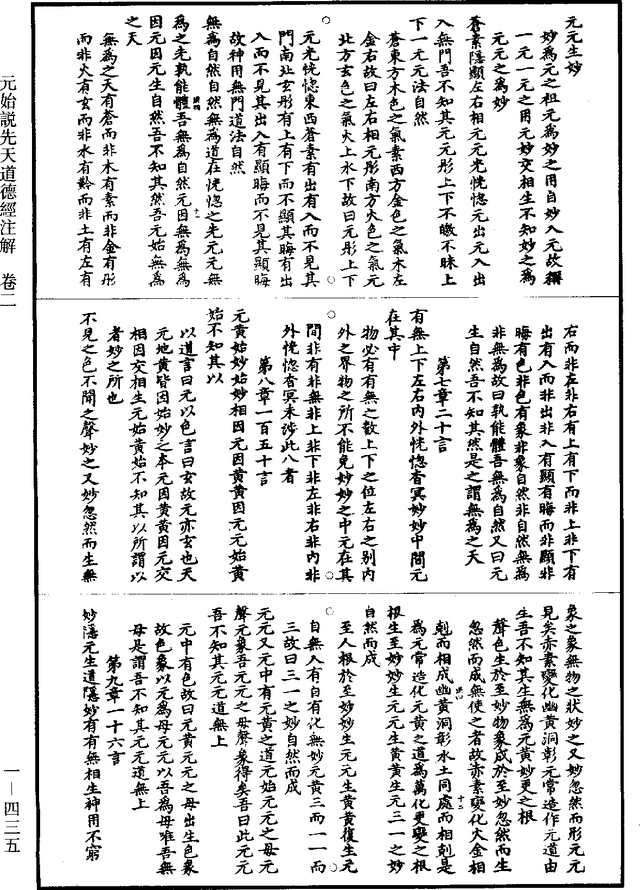 元始説先天道德經注解 卷二
元元生妙
妙為元之祖元為妙之用自妙入元故稱
一元一元之用元妙交相生不知妙之為
元元之為妙
蒼素隱顯左右相元元光恍惚元出元入出
入無門吾不知其元元彤上下不皦不昧上
下一元元法自然
蒼東方木色之氣素西方金色之氣木左
金右故曰左右相元彤南方火色之氣元
北方玄色之氣火上水下故曰元彤上下
元光恍惚東西蒼素有出有入而不見其
門南北玄彤有上有下而不顯其晦有出
入而不見其出入有顯晦而不見其顯晦
故神用無門道法自然
無為自然自然無為道在恍惚之先元元無
為之先孰能體吾無為自然元因無為無為
因元因元生自然吾不知其然吾元始無為
之天
無為之天有蒼而非木有素而非金有彤
而非火有玄而非水有黅而非土有左有
右而非左非右有上有下而非上非下有
出有入而非出非入有顯有晦而非顯非
晦有色非色有象非象自然非自然無為
非無為故曰孰能體吾無為自然又曰元
生自然吾不知其然是之謂無為之天
第七章二十言
有無上下左右內外恍惚杳冥妙妙中間元
在其中
物必有有無之數上下之位左右之別內
外之界物之所不能免妙妙之中元在其
間非有非無非上非下非左非右非內非
外恍惚杳冥未涉此八者
第八章一百五十言
元黃始妙始妙相因元因黃黃因元元始黃
始不知其以
以道言曰元以色言曰玄故元亦玄也天
元地黃皆因始妙之本元因黃黃因元交
相因交相生元始黃始不知其以所謂以
者妙之所也
不見之色不聞之聲妙之又妙忽然而生無
象之象無物之狀妙之又妙忽然而形元元
見矣赤素變化幽黃洞彰元常造作元道由
生吾不知其生無為元黃妙更之根
聲色生於至妙物象成於至妙忽然而生
忽然而成無使之者故赤素變化火金相
剋而相成幽黃洞彰水土同處而相剋是
為元常造化元黃之道為萬化更變之根
根生至妙妙生元元生黃黃生元三一之妙
自然而成
至人根於至妙妙生元元生黃黃復生元
自無入有自有化無妙元黃三而一一而
三故曰三一之妙自然而成
元元又元中有元黃之道元始元元之母元
聲元象吾元元之母聲象得矣吾曰此元元
吾不知其元元道無上
元中有色故曰元黃元元之母出生色象
故色象以元為母元元以吾為母唯吾無
母是謂吾不知其元元道無上
第九章一十六言
妙隱元生道隱妙有有無相生神用不窮
一—四三五